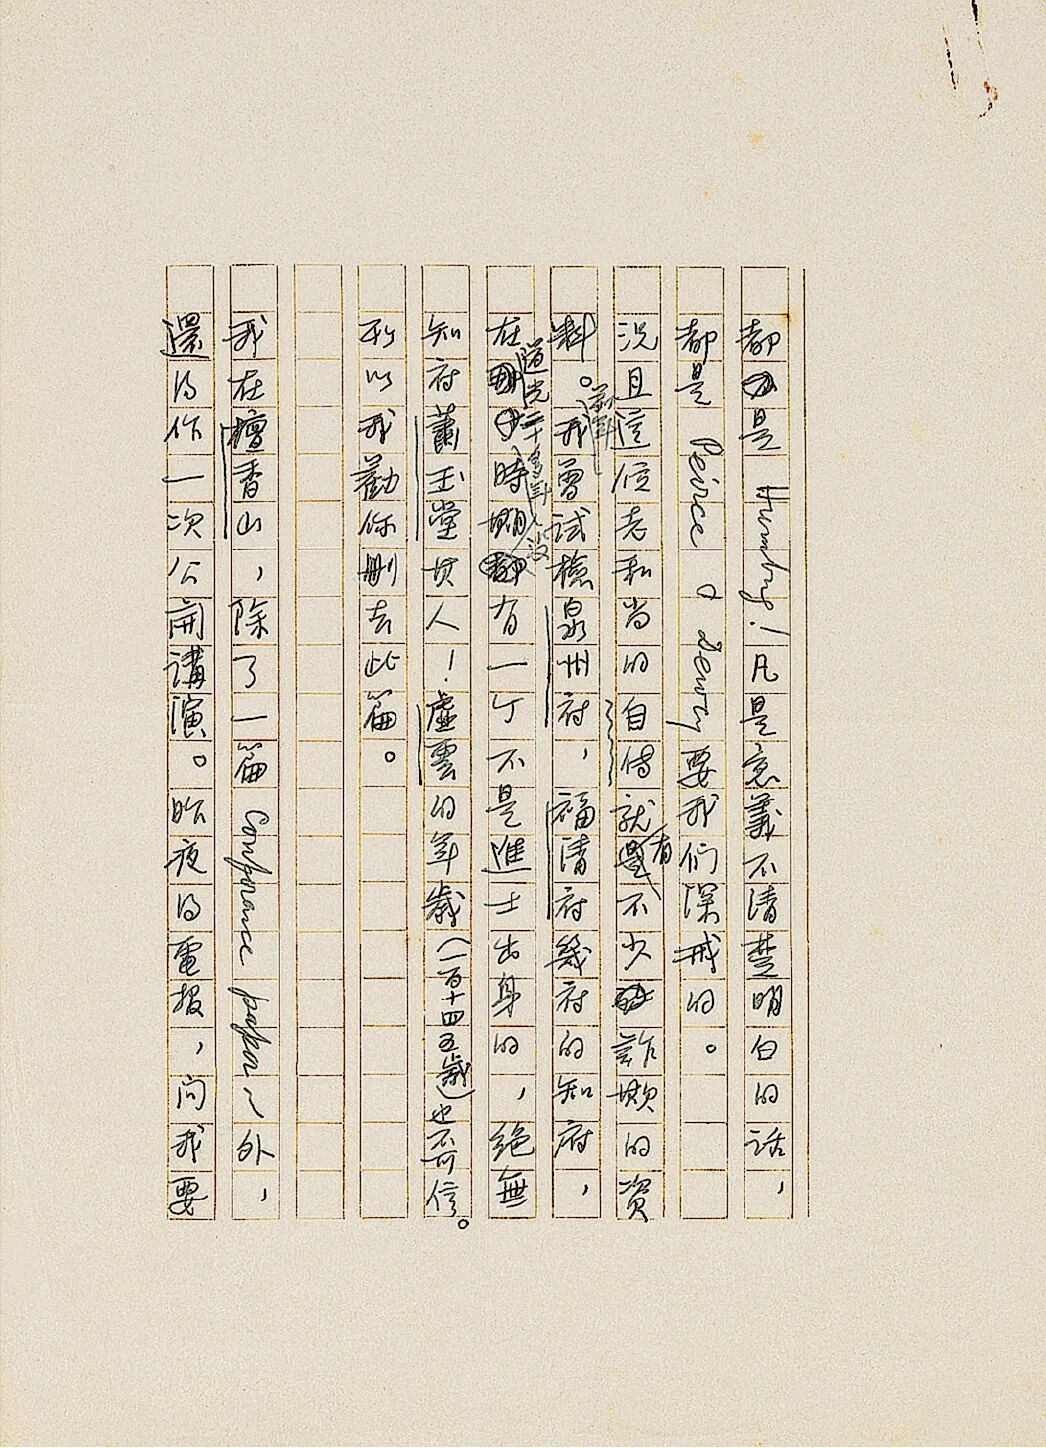 都是 Humbug! 凡是意義不清楚明白的話，
都是 Peirce & Dewey 要我們深戒的。
況且這位老和尚的自傳就有不少詐欺的資
料。我前年曾試檢泉州府，福清府幾府的知府，
在道光二十多年時期，沒有一个不是進士出身的，絕無
知府蕭玉堂其人！虛雲的年歲（一百十四五歲）也不可信。
所以我勸你刪去此篇。
我在檀香山，除了一篇 Conference paper 外，
還得作一次公開講演。昨夜得電报，问我要